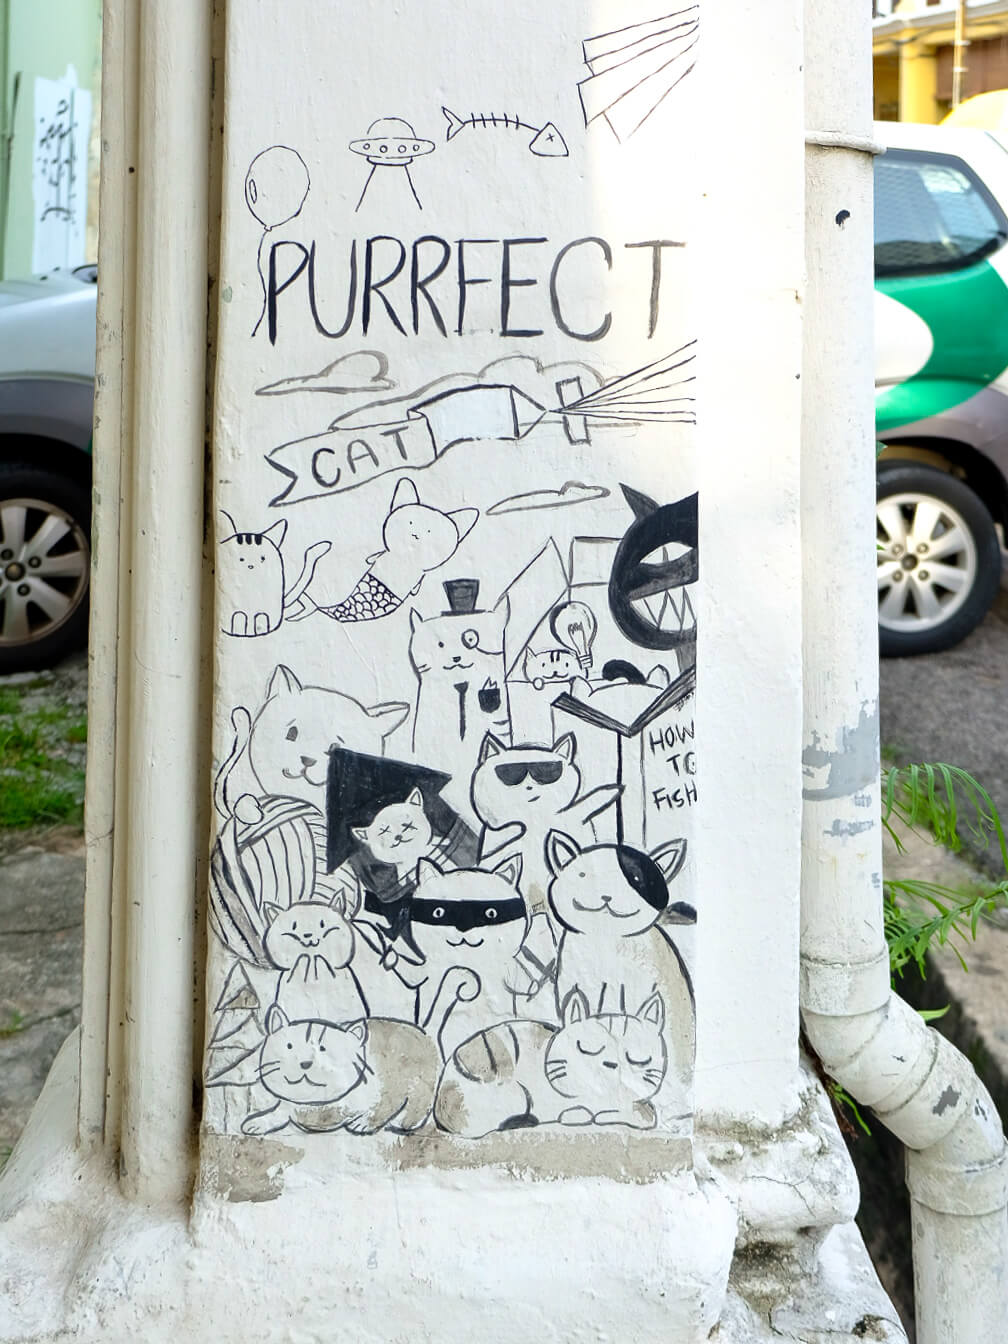 PURRFECT
CAT
HOW
TO
FISH